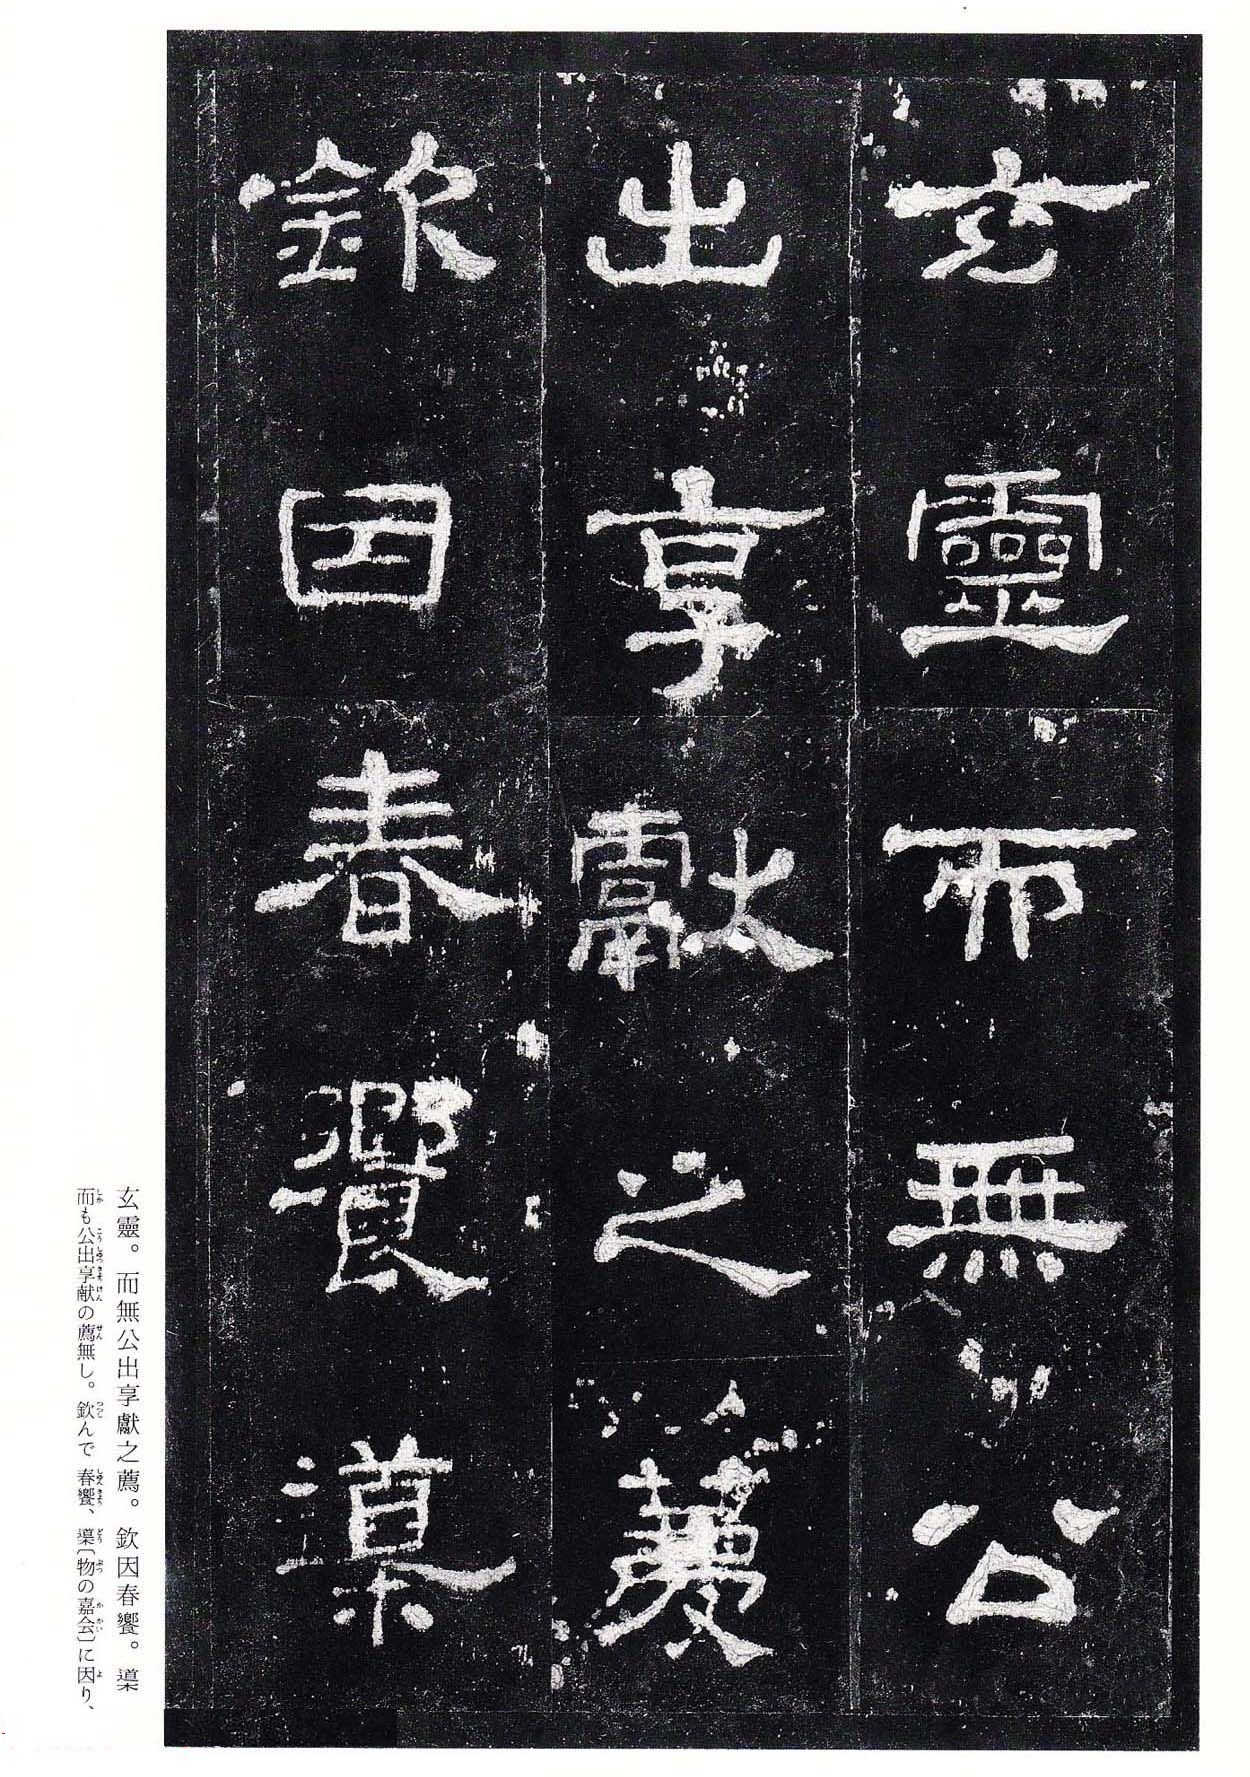 玄靈而無公
出享獻之薦
欽因春饗𨗓
玄靈。而無公出享獻之薦。欽因春饗。𨗓
而も公出享献の薦無し。欽んで 春饗、𨗓〔物の嘉会〕に因り、